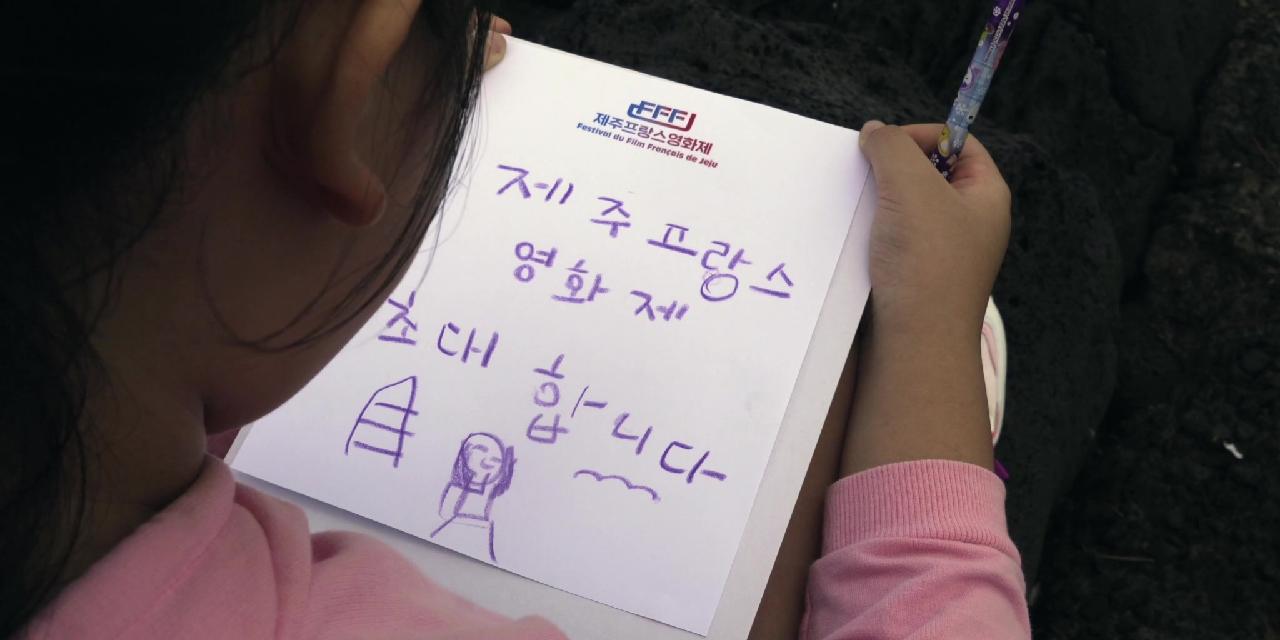 FFFJ
제주프랑스영화제
Festival du Film Français de Jeju
제주프랑스
영화제
초대합니다